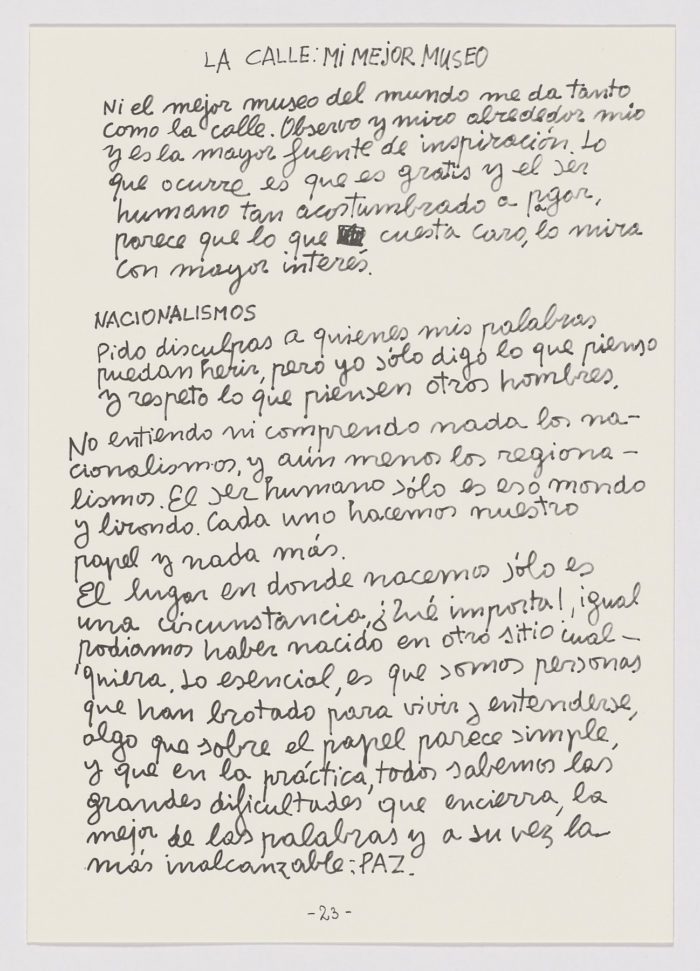 LA CALLE: MI MEJOR MUSEO
Ni el mejor museo del mundo me da tanto
como la calle. Observo y miro alrededor mio
y es la mayor fuente de inspiración. Lo
que ocurre es que es gratis y el ser
humano tan acostumbrado a pagar,
parece que lo que cuesta caro, lo mira
con mayor interés.
NACIONALISMOS
Pido disculpas a quienes mis palabras
puedan herir, pero yo sólo digo lo que pienso
y respeto lo que piensen otros hombres.
No entiendo ni comprendo nada los na-
cionalismos, y aún menos los regiona-
lismos. El ser humano sólo es eso mondo
y lirondo. Cada uno hacemos nuestro
papel y nada más.
El lugar en donde nacemos sólo es
una circunstancia, ¿Qué importa!, igual
podiamos haber nacido en otro sitio cual-
quiera. Lo esencial, es que somos personas
que han brotado para vivir y entenderse,
algo que sobre el papel parece simple,
y que en la práctica, todos sabemos las
grandes dificultades que encierra, la
mejor de las palabras y a su vez la
más inalcanzable: PAZ.
-23-